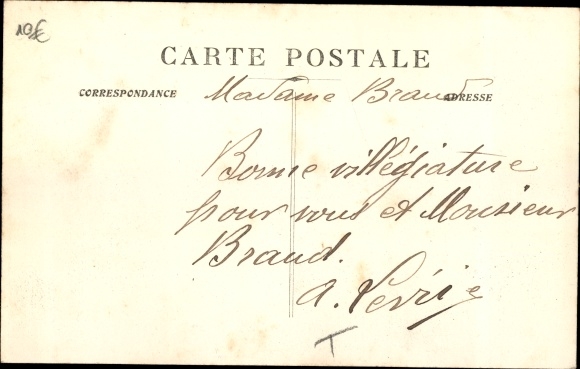 10€
CARTE POSTALE
CORRESPONDANCE
ADRESSE
Madame Braud
Bonne villégiature
pour vous et Monsieur
Braud.
A.
T